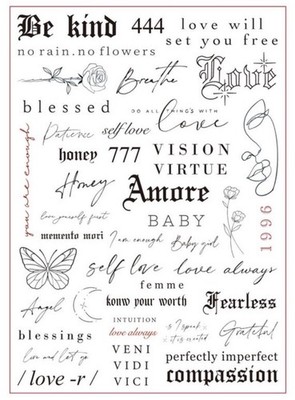 Be kind
444
love will
set you free
no rain. no flowers
Breathe
Love
blessed
DO ALL THINGS WITH
Love
Patience
self love
you are enough
honey
777
VISION
VIRTUE
Honey
Amore
love yourself first
BABY
1996
memento mori
I am enough
Baby girl
self love
love always
femme
Angel
konw your worth
Fearless
INTUITION
love always
blessings
Grateful
live and let go
VENI
VIDI
VICI
perfectly imperfect
/ love -r /
compassion